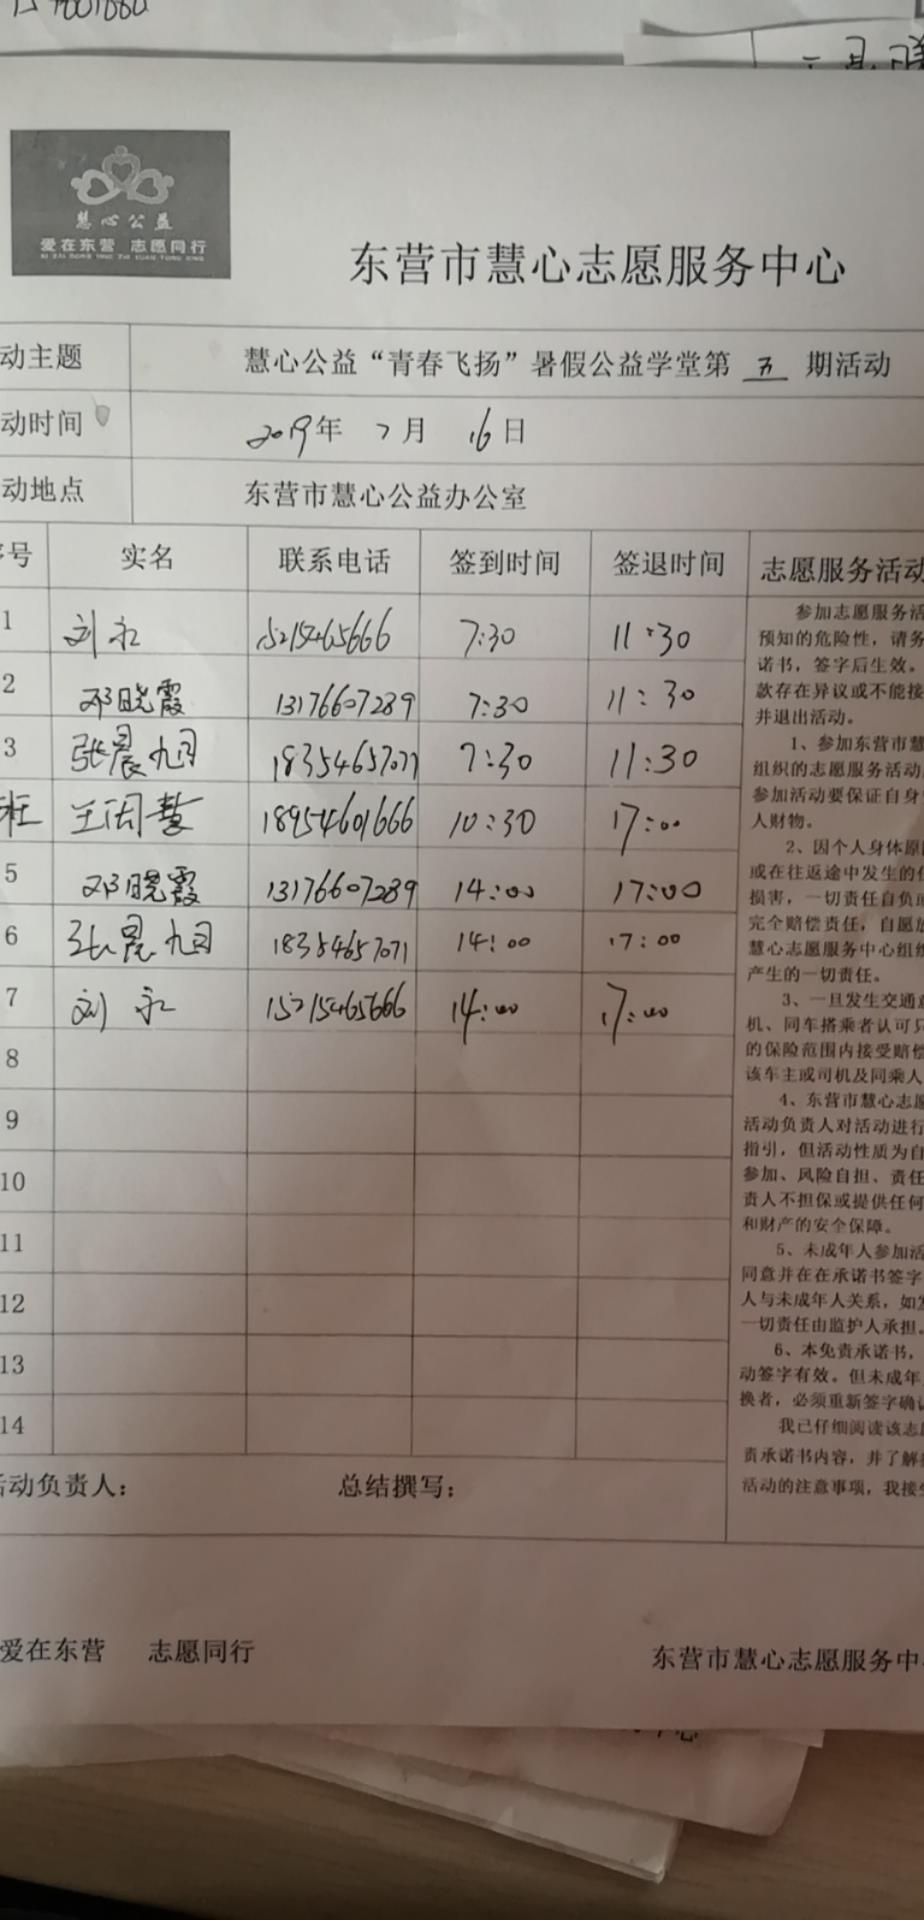 慧心公益
爱在东营 志愿同行
AI ZAI DONG YING ZHI YUAN TONG XING
东营市慧心志愿服务中心
动主题 慧心公益“青春飞扬”暑假公益学堂第 五 期活动
动时间 2019年 7月 16日
动地点 东营市慧心公益办公室
序号 实名 联系电话 签到时间 签退时间 志愿服务活动
1 刘永 15215465666 7:30 11:30
2 邓晓霞 13176607289 7:30 11:30
3 张晨旭 18354657071 7:30 11:30
王闰慧 18954601666 10:30 17:00
5 邓晓霞 13176607289 14:00 17:00
6 张晨旭 18354657071 14:00 17:00
7 刘永 15215465666 14:00 17:00
8
9
10
11
12
13
14
参加志愿服务活
预知的危险性，请务
诺书，签字后生效。
款存在异议或不能接
并退出活动。
1、参加东营市慧
组织的志愿服务活动
参加活动要保证自身
人财物。
2、因个人身体原因
或在往返途中发生的任
损害，一切责任自负或
完全赔偿责任，自愿放
慧心志愿服务中心组织
产生的一切责任。
3、一旦发生交通意
机、同车搭乘者认可只
的保险范围内接受赔偿
该车主或司机及同乘人
4、东营市慧心志愿
活动负责人对活动进行
指引，但活动性质为自
参加、风险自担、责任
责人不担保或提供任何
和财产的安全保障。
5、未成年人参加活
同意并在在承诺书签字
人与未成年人关系，如发
一切责任由监护人承担。
6、本免责承诺书，
动签字有效。但未成年
换者，必须重新签字确认
我已仔细阅读该志愿
责承诺书内容，并了解
活动的注意事项，我接受
活动负责人： 总结撰写：
爱在东营 志愿同行 东营市慧心志愿服务中